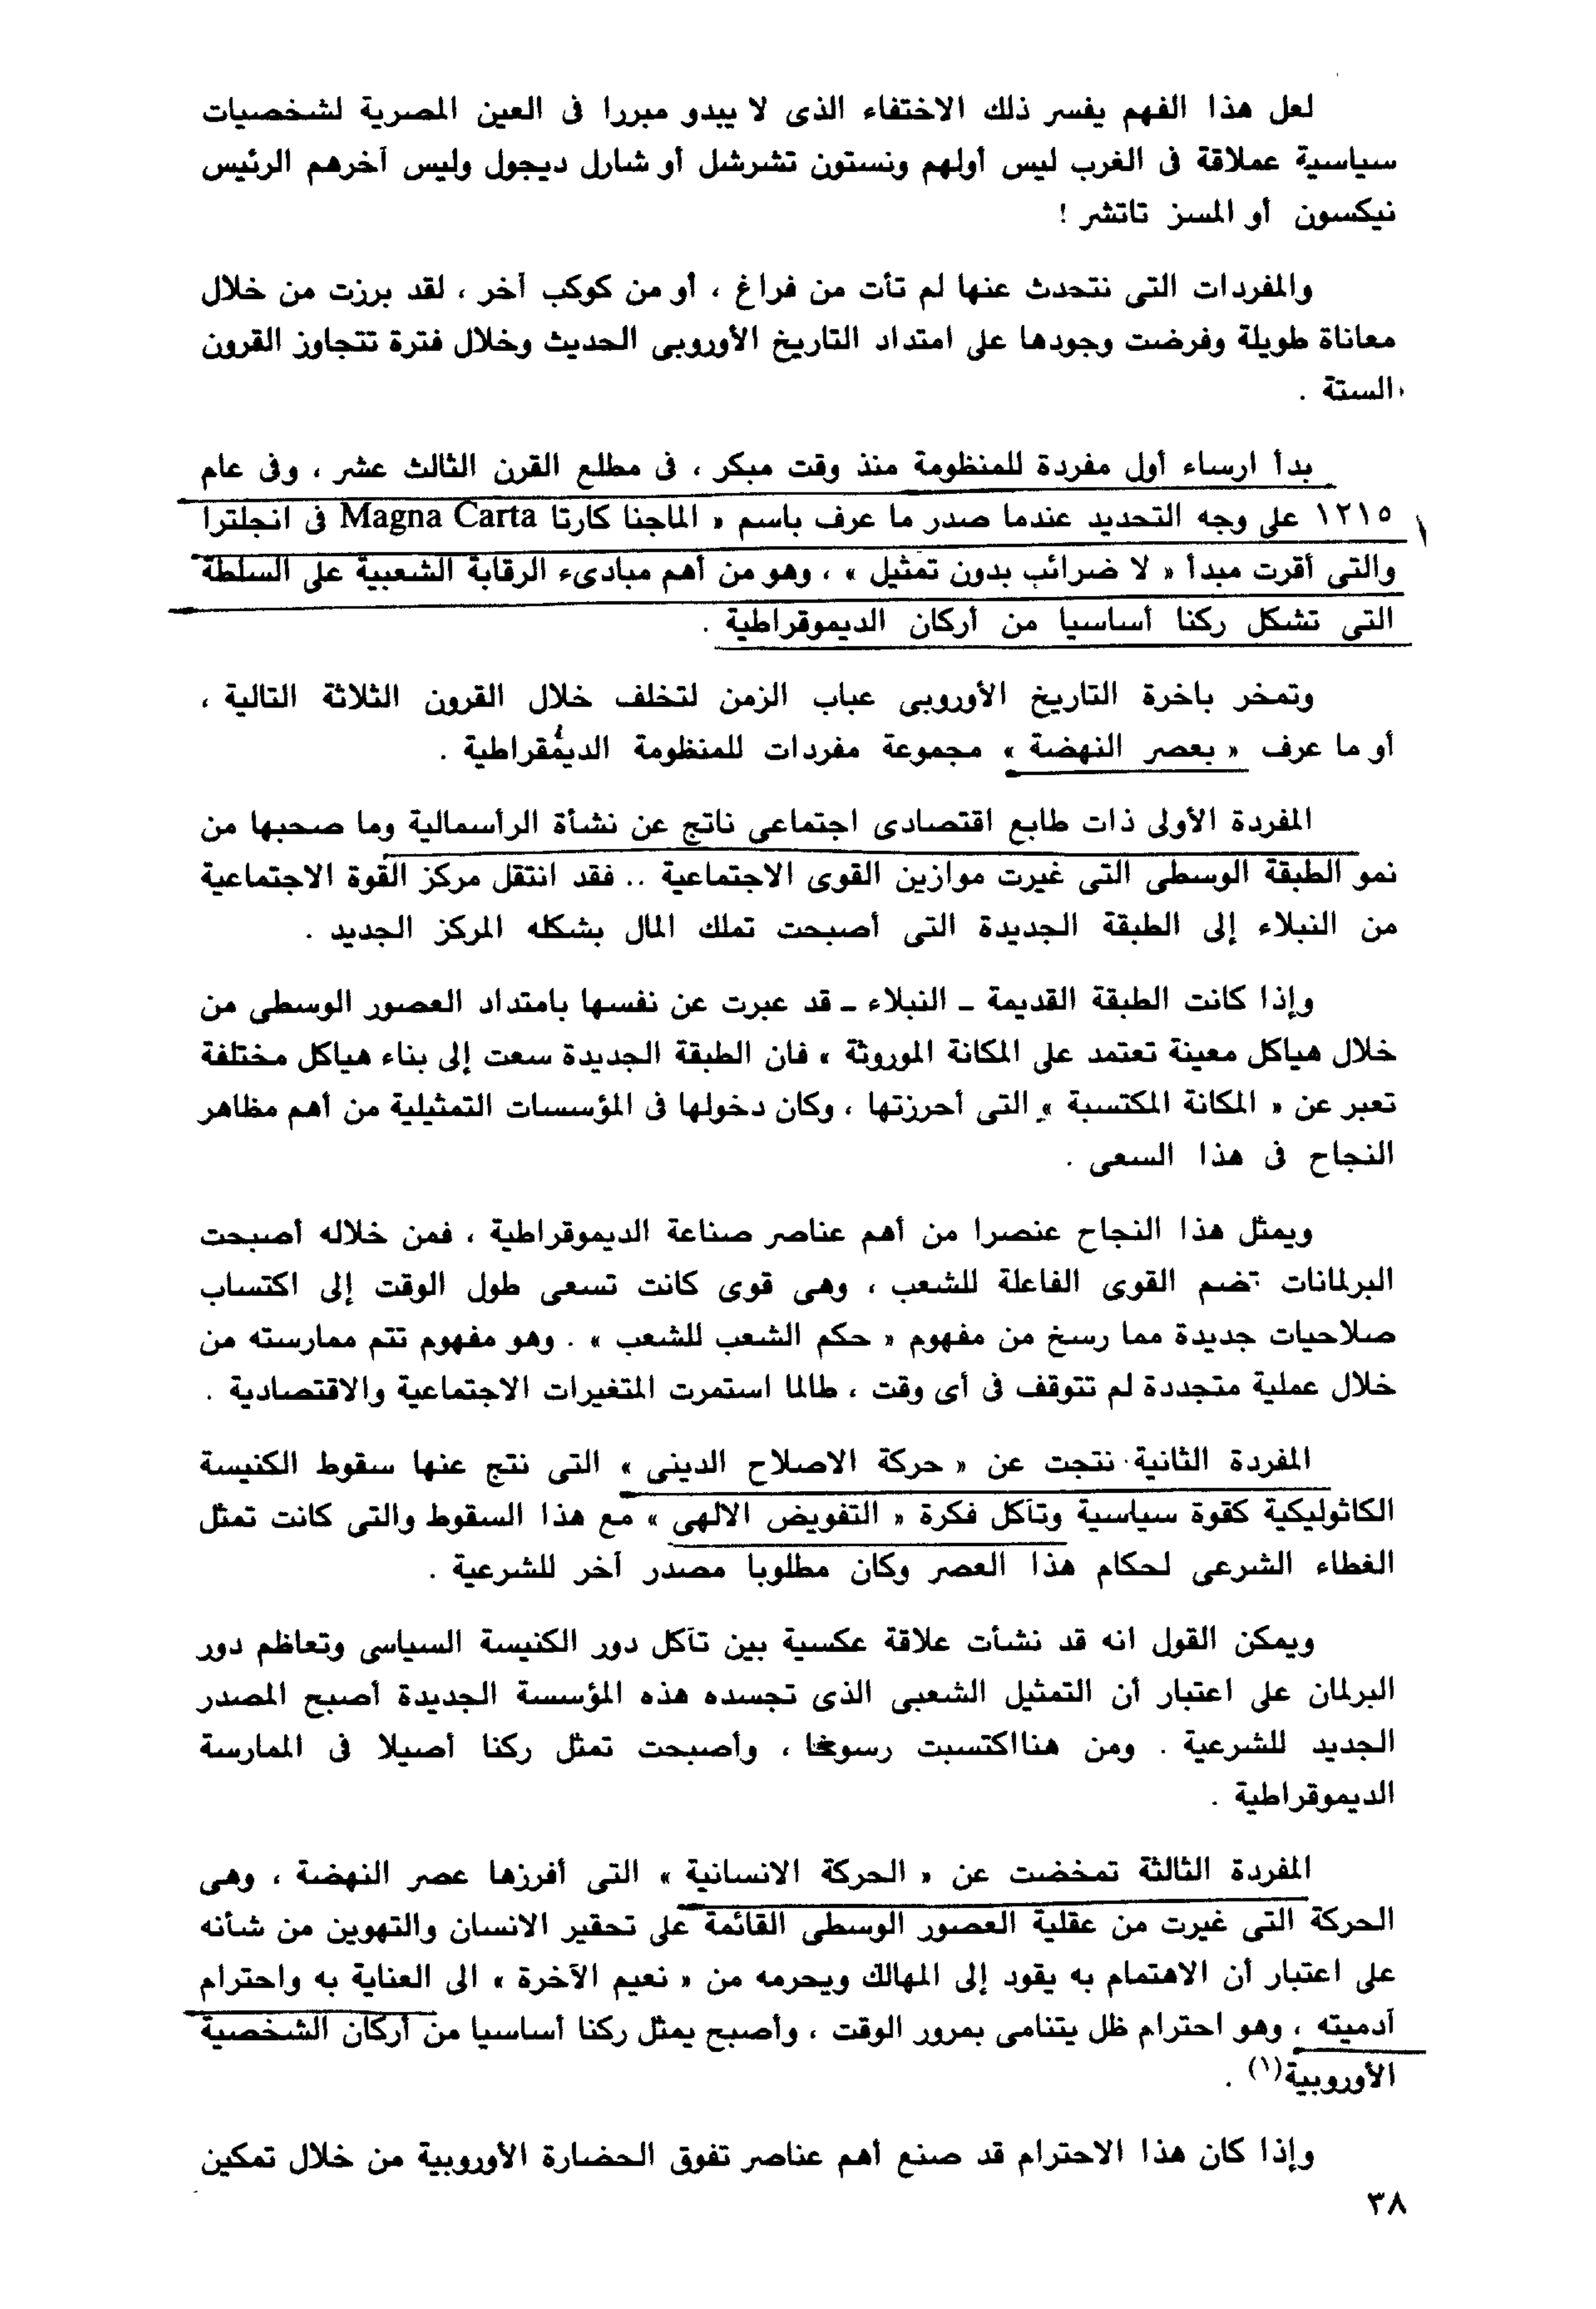 لعل هذا الفهم يفسر ذلك الاختفاء الذى لا يبدو مبررا فى العين المصرية لشخصيات
سياسية عملاقة فى الغرب ليس أولهم ونستون تشرشل أو شارل ديجول وليس آخرهم الرئيس
نيكسون أو المسز تاتشر !
والمفردات التى نتحدث عنها لم تأت من فراغ ، أو من كوكب آخر ، لقد برزت من خلال
معاناة طويلة وفرضت وجودها على امتداد التاريخ الأوروبى الحديث وخلال فترة تتجاوز القرون
الستة .
بدأ ارساء أول مفردة للمنظومة منذ وقت مبكر ، فى مطلع القرن الثالث عشر ، وفى عام
١٢١٥ على وجه التحديد عندما صدر ما عرف باسم « الماجنا كارتا Magna Carta فى انجلترا
والتى أقرت مبدأ « لا ضرائب بدون تمثيل » ، وهو من أهم مبادىء الرقابة الشعبية على السلطة
التى تشكل ركنا أساسيا من أركان الديموقراطية .
وتمخر باخرة التاريخ الأوروبى عباب الزمن لتخلف خلال القرون الثلاثة التالية ،
أو ما عرف « بعصر النهضة » مجموعة مفردات للمنظومة الديمقراطية .
المفردة الأولى ذات طابع اقتصادى اجتماعى ناتج عن نشأة الرأسمالية وما صحبها من
نمو الطبقة الوسطى التى غيرت موازين القوى الاجتماعية .. فقد انتقل مركز القوة الاجتماعية
من النبلاء إلى الطبقة الجديدة التى أصبحت تملك المال بشكله المركز الجديد .
وإذا كانت الطبقة القديمة ـ النبلاء ـ قد عبرت عن نفسها بامتداد العصور الوسطى من
خلال هياكل معينة تعتمد على المكانة الموروثة » فان الطبقة الجديدة سعت إلى بناء هياكل مختلفة
تعبر عن « المكانة المكتسبة » التى أحرزتها ، وكان دخولها فى المؤسسات التمثيلية من أهم مظاهر
النجاح فى هذا السعى .
ويمثل هذا النجاح عنصرا من أهم عناصر صناعة الديموقراطية ، فمن خلاله أصبحت
البرلمانات تضم القوى الفاعلة للشعب ، وهى قوى كانت تسعى طول الوقت إلى اكتساب
صلاحيات جديدة مما رسخ من مفهوم « حكم الشعب للشعب » . وهو مفهوم تتم ممارسته من
خلال عملية متجددة لم تتوقف فى أى وقت ، طالما استمرت المتغيرات الاجتماعية والاقتصادية .
المفردة الثانية نتجت عن « حركة الاصلاح الدينى » التى نتج عنها سقوط الكنيسة
الكاثوليكية كقوة سياسية وتآكل فكرة « التفويض الالهى » مع هذا السقوط والتى كانت تمثل
الغطاء الشرعى لحكام هذا العصر وكان مطلوبا مصدر آخر للشرعية .
ويمكن القول انه قد نشأت علاقة عكسية بين تآكل دور الكنيسة السياسى وتعاظم دور
البرلمان على اعتبار أن التمثيل الشعبى الذى تجسده هذه المؤسسة الجديدة أصبح المصدر
الجديد للشرعية . ومن هنااكتسبت رسوخا ، وأصبحت تمثل ركنا أصيلا فى الممارسة
الديموقراطية .
المفردة الثالثة تمخضت عن « الحركة الانسانية » التى أفرزها عصر النهضة ، وهى
الحركة التى غيرت من عقلية العصور الوسطى القائمة على تحقير الانسان والتهوين من شأنه
على اعتبار أن الاهتمام به يقود إلى المهالك ويحرمه من « نعيم الآخرة » الى العناية به واحترام
آدميته ، وهو احترام ظل يتنامى بمرور الوقت ، وأصبح يمثل ركنا أساسيا من أركان الشخصية
الأوروبية(١) .
وإذا كان هذا الاحترام قد صنع أهم عناصر تفوق الحضارة الأوروبية من خلال تمكين
٣٨